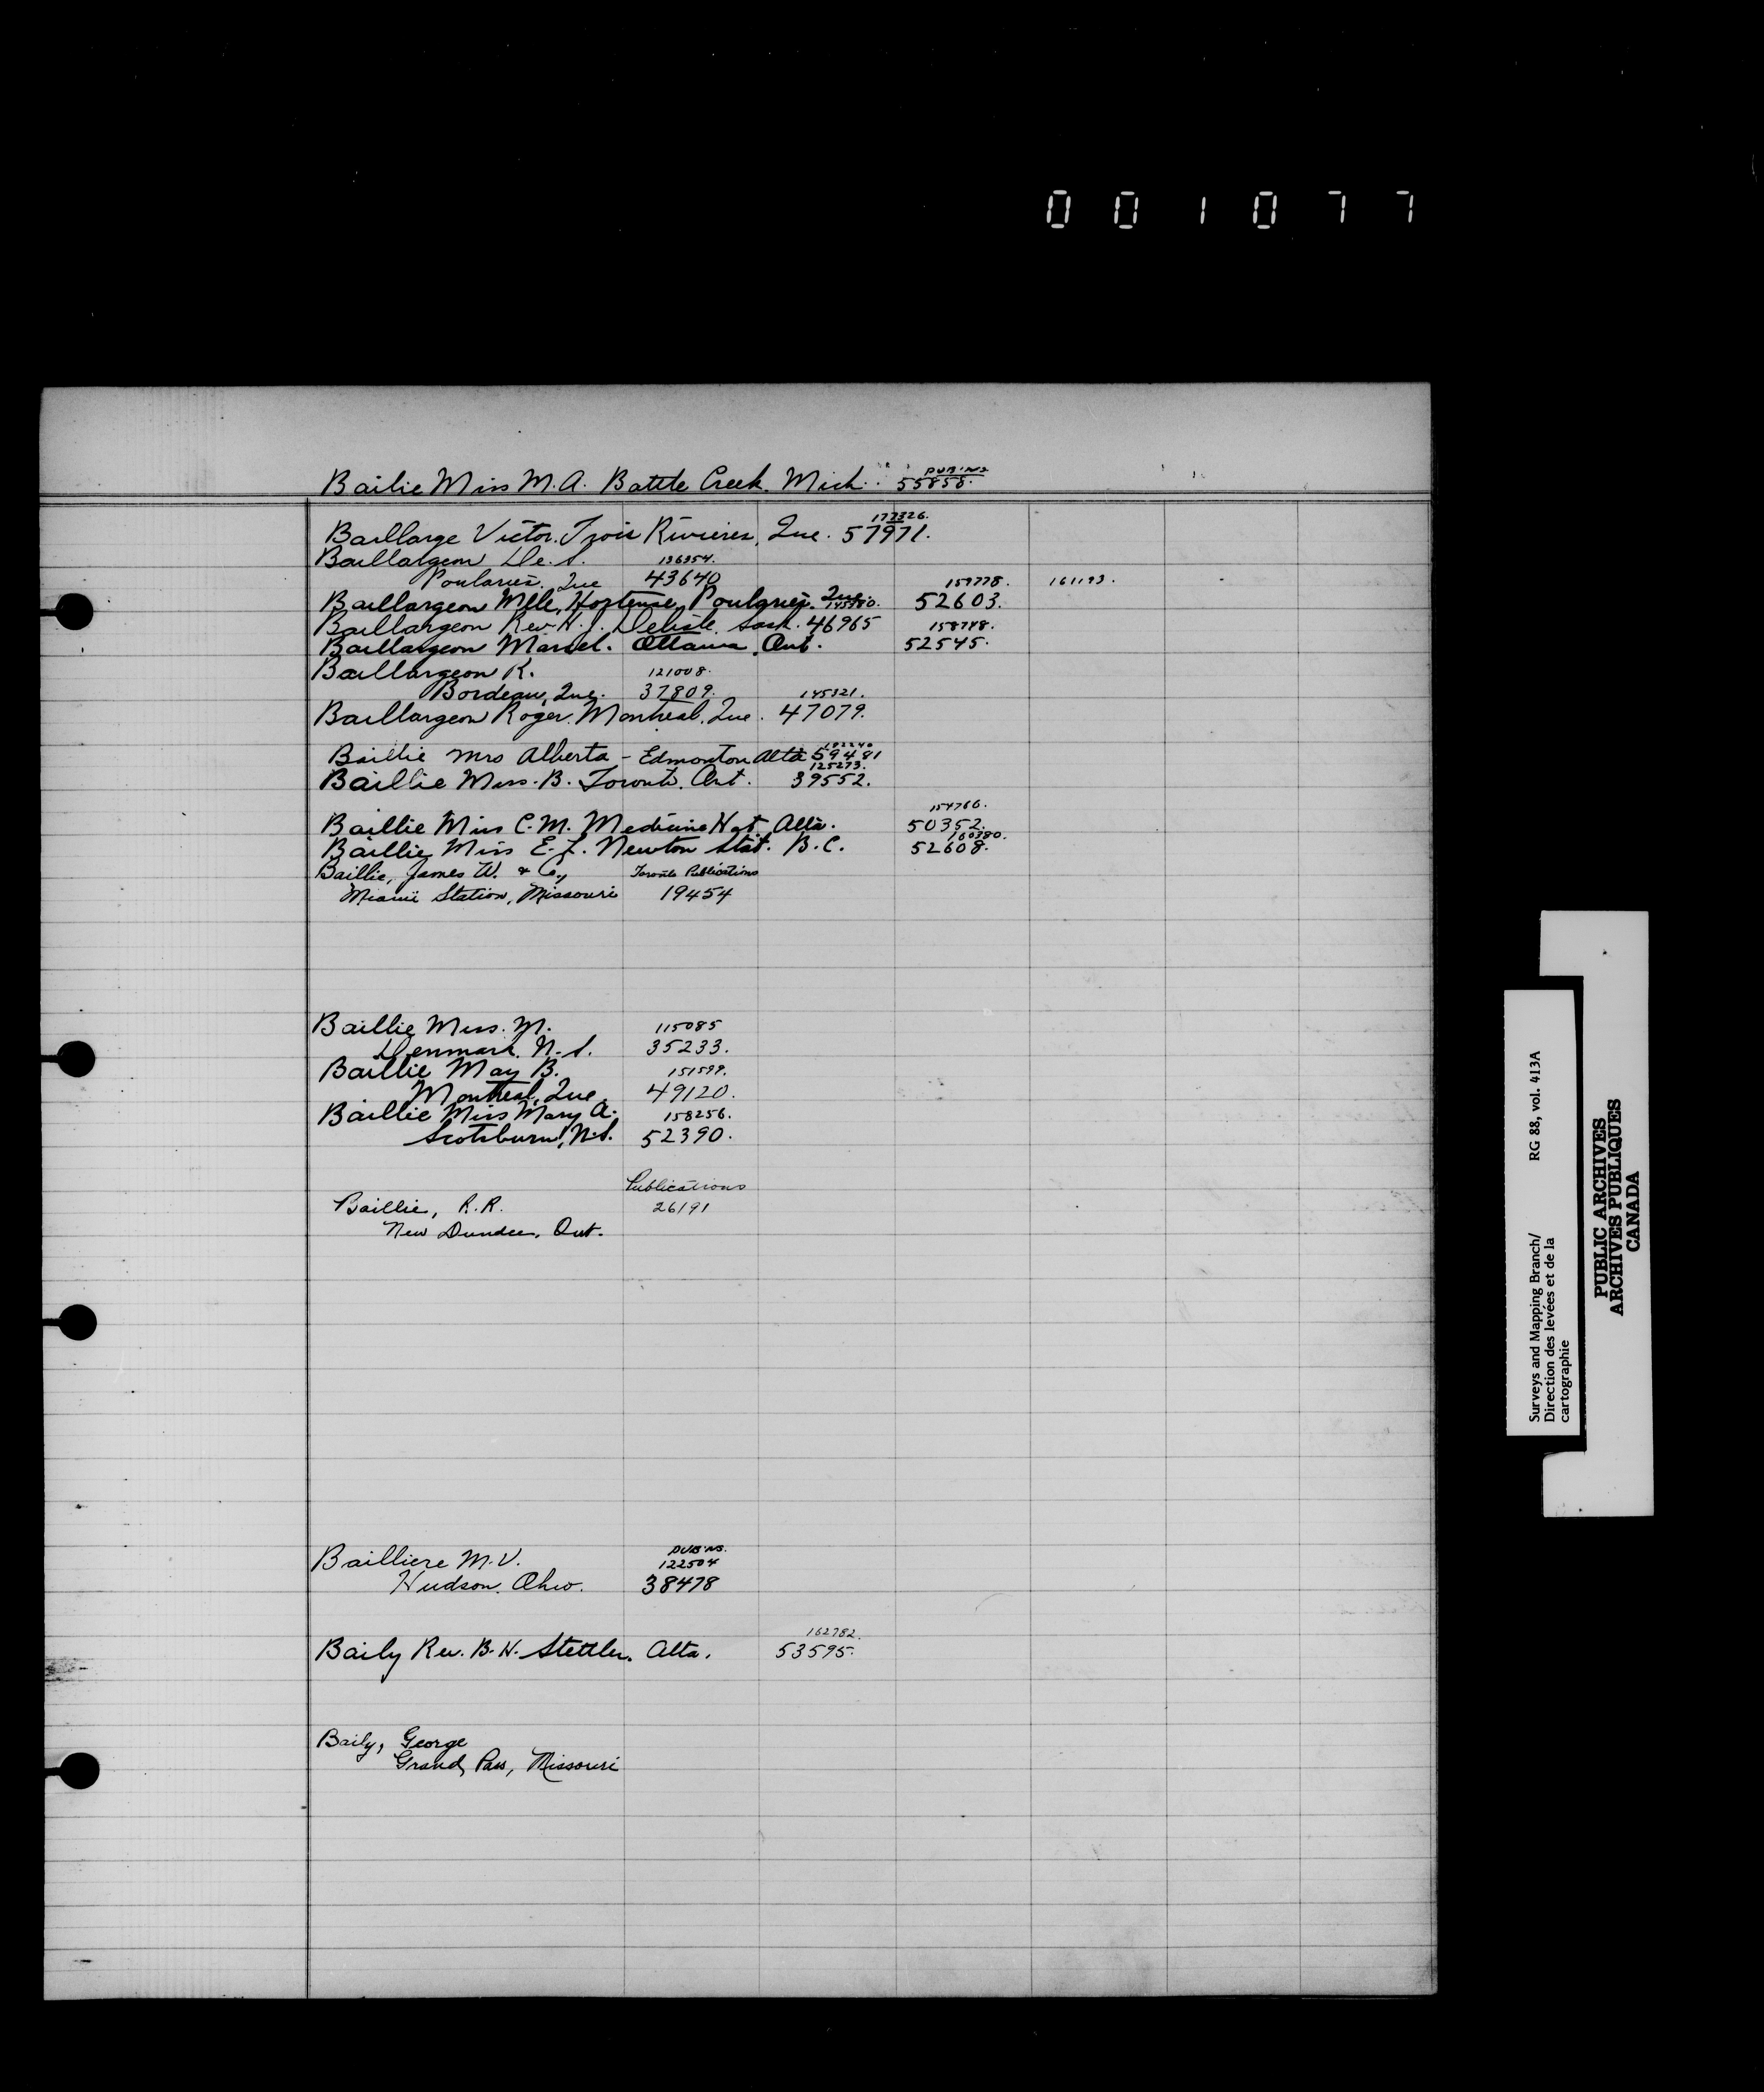 001077
PUB'NS
Bailie Miss M.A. Battle Creek. Mich. 55858.
172326.
Baillarge Victor. Trois Rivieres, Que. 57971.
Baillargeon De. S. 136354.
Poularies. Que 43640 159778. 161193.
Baillargeon Mlle, Hortense, Poularies. Que. 52603.
145380.
Baillargeon Rev. H. J. Delisle Sask. 46965 158748.
Baillargeon Marcel. Ottawa, Ont. 52545.
Baillargeon R. 121008.
Bordeau, Que. 37809. 145321.
Baillargeon Roger. Montreal, Que. 47079.
Baillie Mrs Alberta - Edmonton Alta 59481
125273.
Baillie Miss. B. Toronto, Ont. 39552.
154766.
Baillie Miss C.M. Medicine Hat, Alta. 50352.
160380.
Baillie Miss E. L. Newton Stat. B.C. 52608.
Baillie, James W. & Co., Toronto Publications
Miami Station, Missouri 19454
Baillie Miss. M. 115085
Denmark, N.S. 35233.
Baillie May B. 151599.
Montreal, Que. 49120.
Baillie Miss Mary A. 158256.
Scotsburn, N.S. 52390.
Publications
Baillie, R.R. 26191
New Dundee, Ont.
PUB'NS.
Bailliere M.V. 122504
Hudson, Ohio. 38478
162782.
Baily Rev. B.H. Stettler. Alta. 53595.
Baily, George
Grand Pass, Missouri
Surveys and Mapping Branch/ RG 88, vol. 413A
Direction des levées et de la
cartographie
PUBLIC ARCHIVES
ARCHIVES PUBLIQUES
CANADA